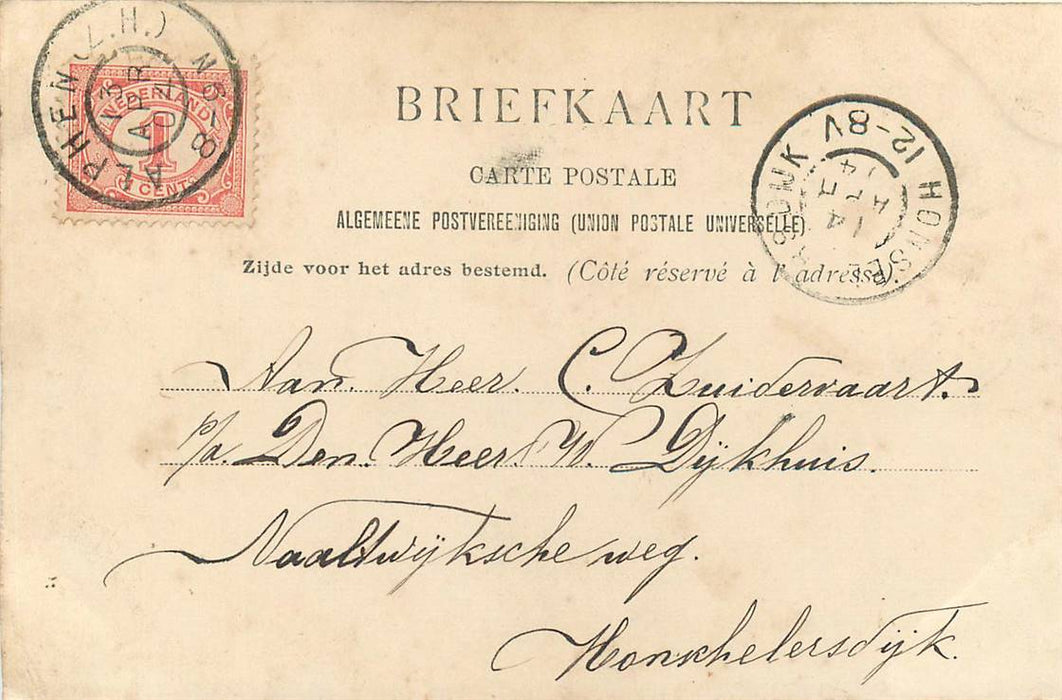 ALPHEN (Z.H.)
13 APR 04
8-9N
NEDERLAND
1
CENT
BRIEFKAART
CARTE POSTALE
ALGEMEENE POSTVEREENIGING (UNION POSTALE UNIVERSELLE)
Zijde voor het adres bestemd. (Côté réservé à l'adresse).
HONSE
12-8V
14
Aan. Heer. C. Zuidervaart.
p/a. Den. Heer. W. Dijkhuis.
Naaltwijksche weg.
Honschelersdijk.